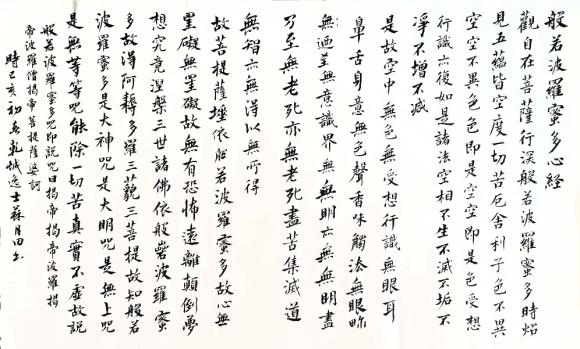 般若波羅蜜多心經
觀自在菩薩行深般若波羅蜜多時炤
見五蘊皆空度一切苦厄舍利子色不異
空空不異色色即是空空即是色受想
行識亦復如是諸法空相不生不滅不垢不
淨不增不減
是故空中無色無受想行識無眼耳
鼻舌身意無色聲香味觸法無眼界
無迺至無意識界無無明亦無無明盡
乃至無老死亦無老死盡苦集滅道
無智亦無得以無所得
故菩提薩埵依般若波羅蜜多故心無
罣礙無罣礙故無有恐怖遠離顛倒夢
想究竟涅槃三世諸佛依般若波羅蜜
多故得阿耨多羅三藐三菩提故知般若
波羅蜜多是大神咒是大明咒是無上咒
是無等等咒能除一切苦真實不虛故說
般若波羅蜜多咒即說咒曰揭帝揭帝波羅揭
帝波羅僧揭帝菩提薩婆訶
時己亥初春乾城逸士蘇月田书